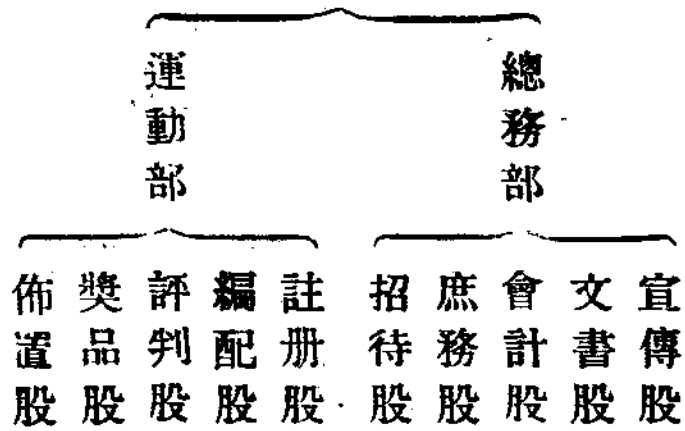 總務部
運動部
宣傳股
文書股
會計股
庶務股
招待股
註册股
編配股
評判股
獎品股
佈置股